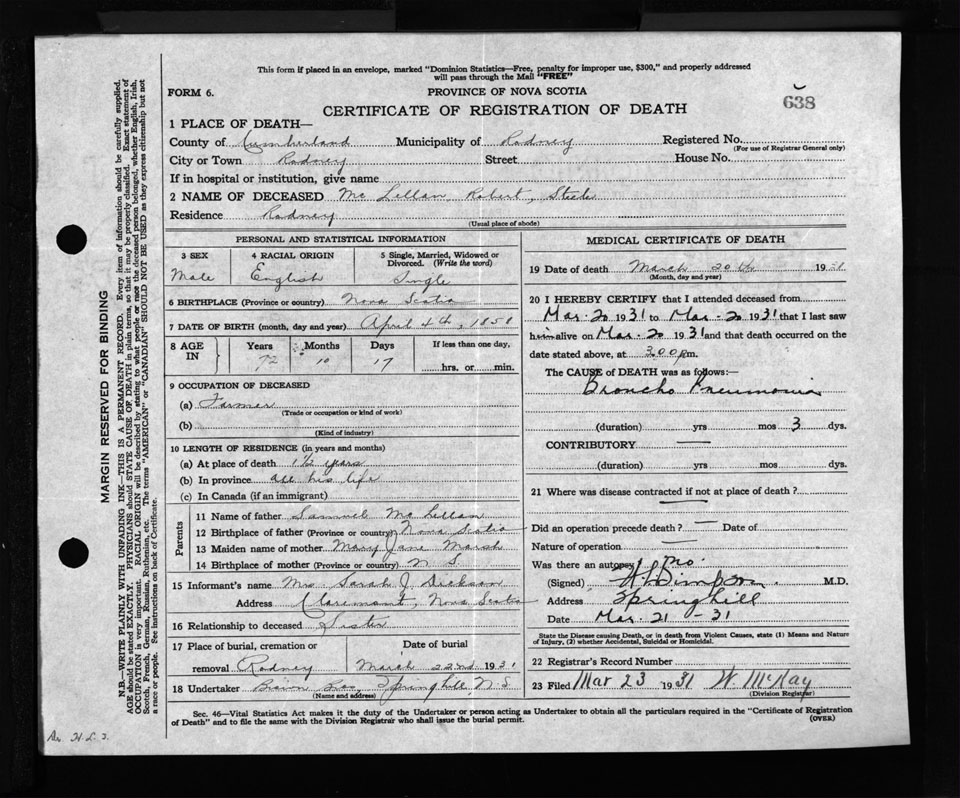 This form if placed in an envelope, marked "Dominion Statistics—Free, penalty for improper use, $300," and properly addressed
will pass through the Mail "FREE"
FORM 6.
PROVINCE OF NOVA SCOTIA
638
CERTIFICATE OF REGISTRATION OF DEATH
1 PLACE OF DEATH—
County of Cumberland Municipality of Rodney Registered No.
(For use of Registrar General only)
City or Town Rodney Street House No.
If in hospital or institution, give name
2 NAME OF DECEASED Mc Lellan Robert, Steele
Residence Rodney
(Usual place of abode)
PERSONAL AND STATISTICAL INFORMATION
3 SEX 4 RACIAL ORIGIN 5 Single, Married, Widowed or
Divorced. (Write the word)
Male English Single
6 BIRTHPLACE (Province or country) Nova Scotia
7 DATE OF BIRTH (month, day and year) April 4th, 1858
8 AGE IN Years Months Days If less than one day,
72 10 17 hrs. or min.
9 OCCUPATION OF DECEASED
(a) Farmer
(Trade or occupation or kind of work)
(b)
(Kind of industry)
10 LENGTH OF RESIDENCE (in years and months)
(a) At place of death 1½ years
(b) In province all his life
(c) In Canada (if an immigrant)
Parents
11 Name of father Samuel Mc Lellan
12 Birthplace of father (Province or country) Nova Scotia
13 Maiden name of mother Mary Jane Marsh
14 Birthplace of mother (Province or country) N S
15 Informant's name Mrs Sarah J Dickson
Address Claremont, Nova Scotia
16 Relationship to deceased Sister
17 Place of burial, cremation or Date of burial
removal Rodney March 22nd 1931
18 Undertaker Brown Bros, Springhill, N S
(Name and address)
MEDICAL CERTIFICATE OF DEATH
19 Date of death March 20th 1931
(Month, day and year)
20 I HEREBY CERTIFY that I attended deceased from
Mar. 20 1931 to Mar. 20 1931 that I last saw
him alive on Mar. 20 1931 and that death occurred on the
date stated above, at 200 pm.
The CAUSE of DEATH was as follows:—
Broncho Pneumonia
(duration) yrs mos 3 dys.
CONTRIBUTORY —
(duration) yrs. mos. dys.
21 Where was disease contracted if not at place of death? —
Did an operation precede death? — Date of
Nature of operation —
Was there an autopsy? no.
(Signed) M.D.
Address Springhill
Date Mar. 21 - 31
State the Disease causing Death, or in death from Violent Causes, state (1) Means and Nature
of Injury, (2) whether Accidental, Suicidal or Homicidal.
22 Registrar's Record Number
23 Filed Mar 23 1931 W McKay
(Division Registrar)
Sec. 46—Vital Statistics Act makes it the duty of the Undertaker or person acting as Undertaker to obtain all the particulars required in the "Certificate of Registration
of Death" and to file the same with the Division Registrar who shall issue the burial permit.
(OVER)
MARGIN RESERVED FOR BINDING
N.B.—WRITE PLAINLY WITH UNFADING INK—THIS IS A PERMANENT RECORD. Every item of information should be carefully supplied.
AGE should be stated EXACTLY. PHYSICIANS should STATE CAUSE OF DEATH in plain terms, so that it may be properly classified. Exact statement of
OCCUPATION is very important. RACIAL ORIGIN will be described by stating to what people or race the deceased person belonged, whether English, Irish,
Scotch, French, German, Russian, Ruthenian, etc. The terms "AMERICAN" or "CANADIAN" SHOULD NOT BE USED as they express citizenship but not
a race or people. See instructions on back of Certificate.